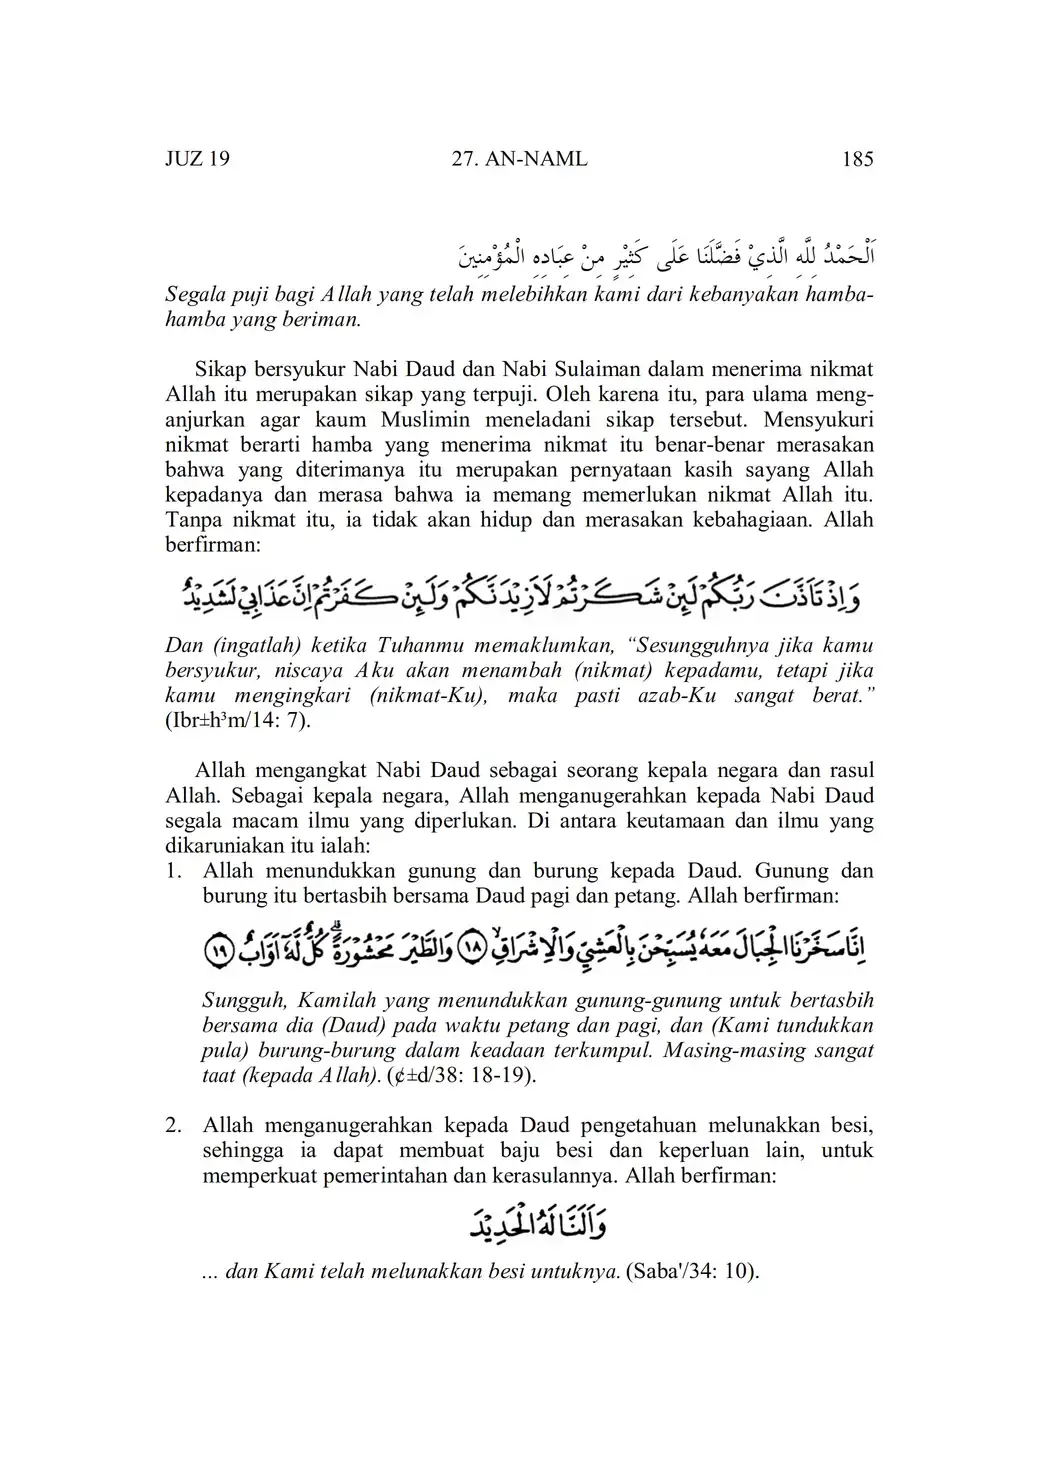 JUZ 19 27. AN-NAML 185
اَلْحَمْدُ لِلَّهِ الَّذِيْ فَضَّلَنَا عَلَى كَثِيْرٍ مِنْ عِبَادِهِ الْمُؤْمِنِينَ
Segala puji bagi Allah yang telah melebihkan kami dari kebanyakan hamba-
hamba yang beriman.
Sikap bersyukur Nabi Daud dan Nabi Sulaiman dalam menerima nikmat
Allah itu merupakan sikap yang terpuji. Oleh karena itu, para ulama meng-
anjurkan agar kaum Muslimin meneladani sikap tersebut. Mensyukuri
nikmat berarti hamba yang menerima nikmat itu benar-benar merasakan
bahwa yang diterimanya itu merupakan pernyataan kasih sayang Allah
kepadanya dan merasa bahwa ia memang memerlukan nikmat Allah itu.
Tanpa nikmat itu, ia tidak akan hidup dan merasakan kebahagiaan. Allah
berfirman:
وَاِذْ تَاَذَّنَ رَبُّكُمْ لَىِٕنْ شَكَرْتُمْ لَاَزِيْدَنَّكُمْ وَلَىِٕنْ كَفَرْتُمْ اِنَّ عَذَابِيْ لَشَدِيْدٌ
Dan (ingatlah) ketika Tuhanmu memaklumkan, “Sesungguhnya jika kamu
bersyukur, niscaya Aku akan menambah (nikmat) kepadamu, tetapi jika
kamu mengingkari (nikmat-Ku), maka pasti azab-Ku sangat berat.”
(Ibr±h³m/14: 7).
Allah mengangkat Nabi Daud sebagai seorang kepala negara dan rasul
Allah. Sebagai kepala negara, Allah menganugerahkan kepada Nabi Daud
segala macam ilmu yang diperlukan. Di antara keutamaan dan ilmu yang
dikaruniakan itu ialah:
1. Allah menundukkan gunung dan burung kepada Daud. Gunung dan
burung itu bertasbih bersama Daud pagi dan petang. Allah berfirman:
اِنَّا سَخَّرْنَا الْجِبَالَ مَعَهٗ يُسَبِّحْنَ بِالْعَشِيِّ وَالْاِشْرَاقِۙ ١٨ وَالطَّيْرَ مَحْشُوْرَةًۗ كُلٌّ لَهٗٓ اَوَّابٌ ١٩
Sungguh, Kamilah yang menundukkan gunung-gunung untuk bertasbih
bersama dia (Daud) pada waktu petang dan pagi, dan (Kami tundukkan
pula) burung-burung dalam keadaan terkumpul. Masing-masing sangat
taat (kepada Allah). (¢±d/38: 18-19).
2. Allah menganugerahkan kepada Daud pengetahuan melunakkan besi,
sehingga ia dapat membuat baju besi dan keperluan lain, untuk
memperkuat pemerintahan dan kerasulannya. Allah berfirman:
وَاَلَنَّا لَهُ الْحَدِيْدَ
... dan Kami telah melunakkan besi untuknya. (Saba'/34: 10).